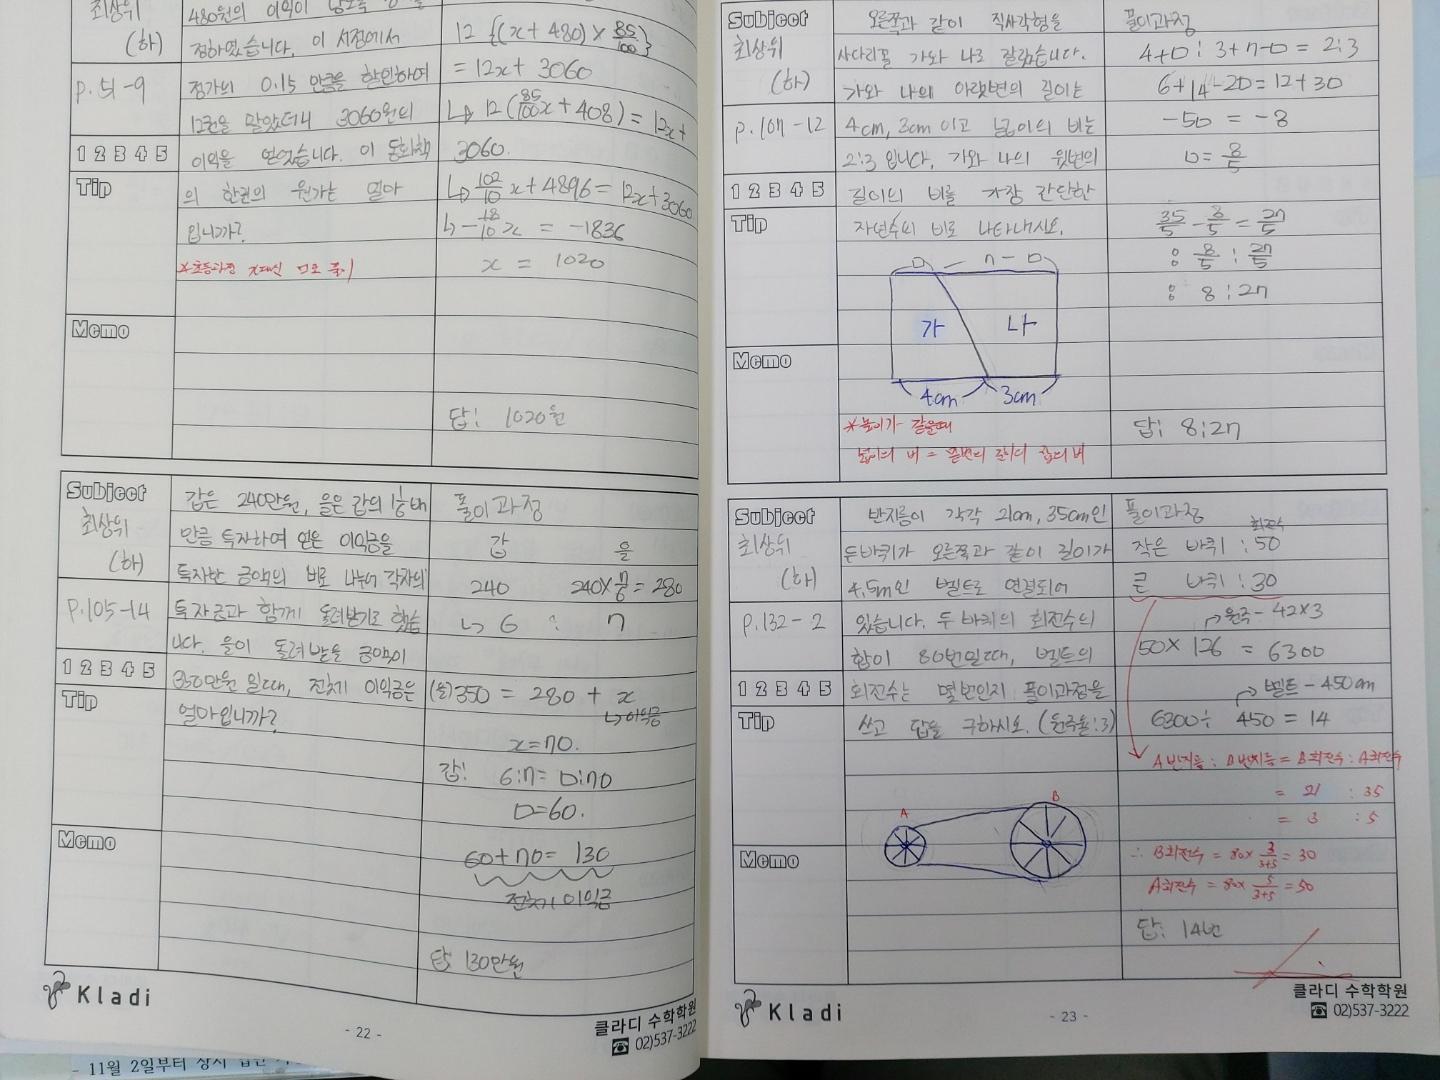 최상위
(하)
480원의 이익이
정하였습니다. 이 서점에서
p.51-9
정가의 0.15 만큼을 할인하여
12권을 팔았더니 3060원의
1 2 3 4 5
이익을 얻었습니다. 이 동화책
Tip
의 한권의 원가는 얼마
입니까?
*초등과정 x대신 □로 풀기
Memo
12{(x+480)×85/100}
=12x+3060
↳ 12(85/100x+408)=12x+
3060.
↳ 102/10x+4896=12x+3060
↳ -18/10x = -1836
x = 1020
답: 1020원
Subject
최상위
(하)
p.105-14
1 2 3 4 5
Tip
Memo
갑은 240만원, 을은 갑의 1 1/6배
만큼 투자하여 얻은 이익금을
투자한 금액의 비로 나누어 각자의
투자금과 함께 돌려받기로 했습
니다. 을이 돌려받을 금액이
350만원 일때, 전체 이익금은
얼마입니까?
풀이과정
갑 을
240 240×7/6=280
↳ 6 : 7
(을)350 = 280 + x
↳이익금
x=70.
갑: 6:7=□:70
□=60.
60+70= 130
전체 이익금
답: 130만원
Kladi
- 22 -
클라디 수학학원
☎ 02)537-3222
- 11월 2일부터 상시
Subject
최상위
(하)
p.107-12
1 2 3 4 5
Tip
Memo
오른쪽과 같이 직사각형을
사다리꼴 가와 나로 잘랐습니다.
가와 나의 아랫변의 길이는
4cm, 3cm 이고 넓이의 비는
2:3 입니다. 가와 나의 윗변의
길이의 비를 가장 간단한
자연수의 비로 나타내시오.
□ 7-□
가 나
4cm 3cm
*높이가 같을때
넓이의 비 =
풀이과정
4+□ : 3+7-□ = 2:3
6+14-2□=12+3□
-5□ = -8
□= 8/5
35/5 - 8/5 = 27/5
: 8/5 : 27/5
: 8:27
답: 8:27
Subject
최상위
(하)
p.132-2
1 2 3 4 5
Tip
Memo
반지름이 각각 21cm, 35cm인
두바퀴가 오른쪽과 같이 길이가
4.5m인 벨트로 연결되어
있습니다. 두 바퀴의 회전수의
합이 80번일때, 벨트의
회전수는 몇번인지 풀이과정을
쓰고 답을 구하시오. (원주율:3)
A B
풀이과정
회전수
작은 바퀴 : 50
큰 바퀴 : 30
원주 - 42×3
50× 126 = 6300
벨트 - 450cm
6300÷ 450 = 14
A반지름 : B반지름 = B회전수 : A회전수
= 21 : 35
= 3 : 5
∴ B회전수 = 80×3/3+5=30
A회전수 = 80×5/3+5=50
답: 14번
Kladi
- 23 -
클라디 수학학원
☎ 02)537-3222